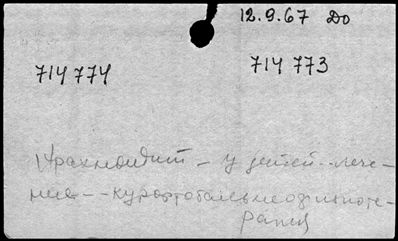 12.9.67 До
714 774 714 773
Арахноидит - у детей - лече-
ние - - курортобальнеофизиоте-
рапия